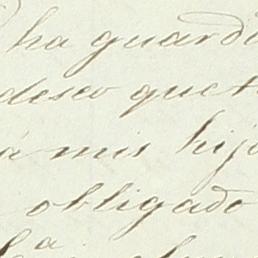 ha guardi
deseo que t
á mis hijo
obligado